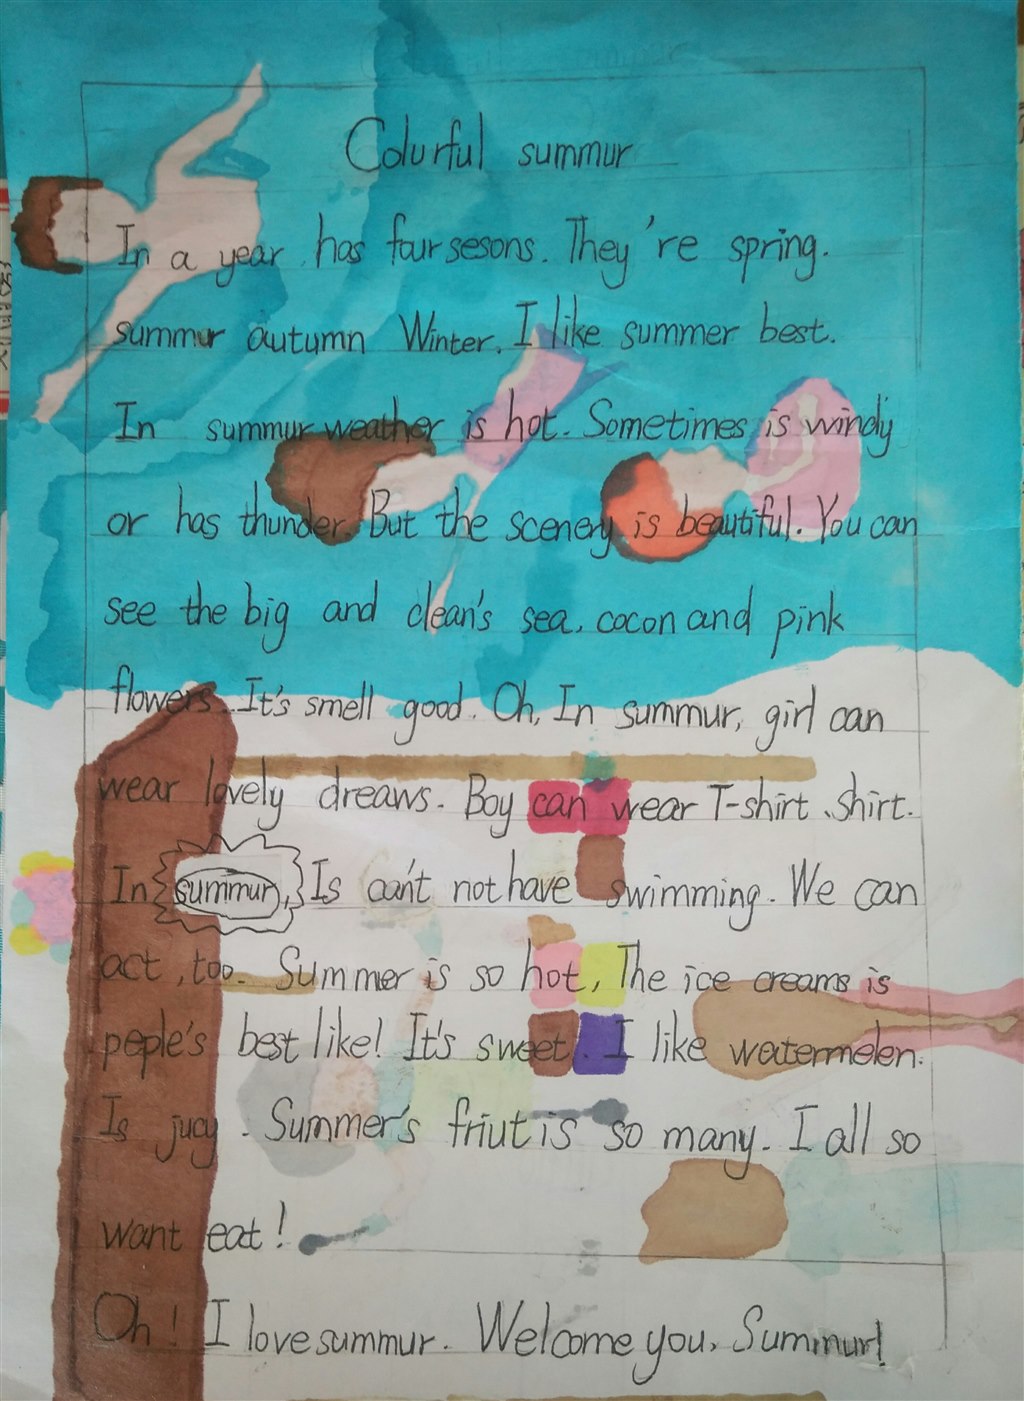 Colurful summur
In a year has four sesons. They're spring.
summur autumn Winter. I like summer best.
In summur weather is hot. Sometimes is windy
or has thunder. But the scenery is beautiful. You can
see the big and clean's sea, cocon and pink
flowers. It's smell good. Oh, In summur, girl can
wear lovely dreaws. Boy can wear T-shirt, shirt.
In summur, Is can't not have swimming. We can
act, too. Summer is so hot, The ice creams is
peple's best like! It's sweet. I like watermelen.
Is jucy. Summer's friut is so many. I all so
want eat!
Oh! I love summur. Welcome you, Summur!